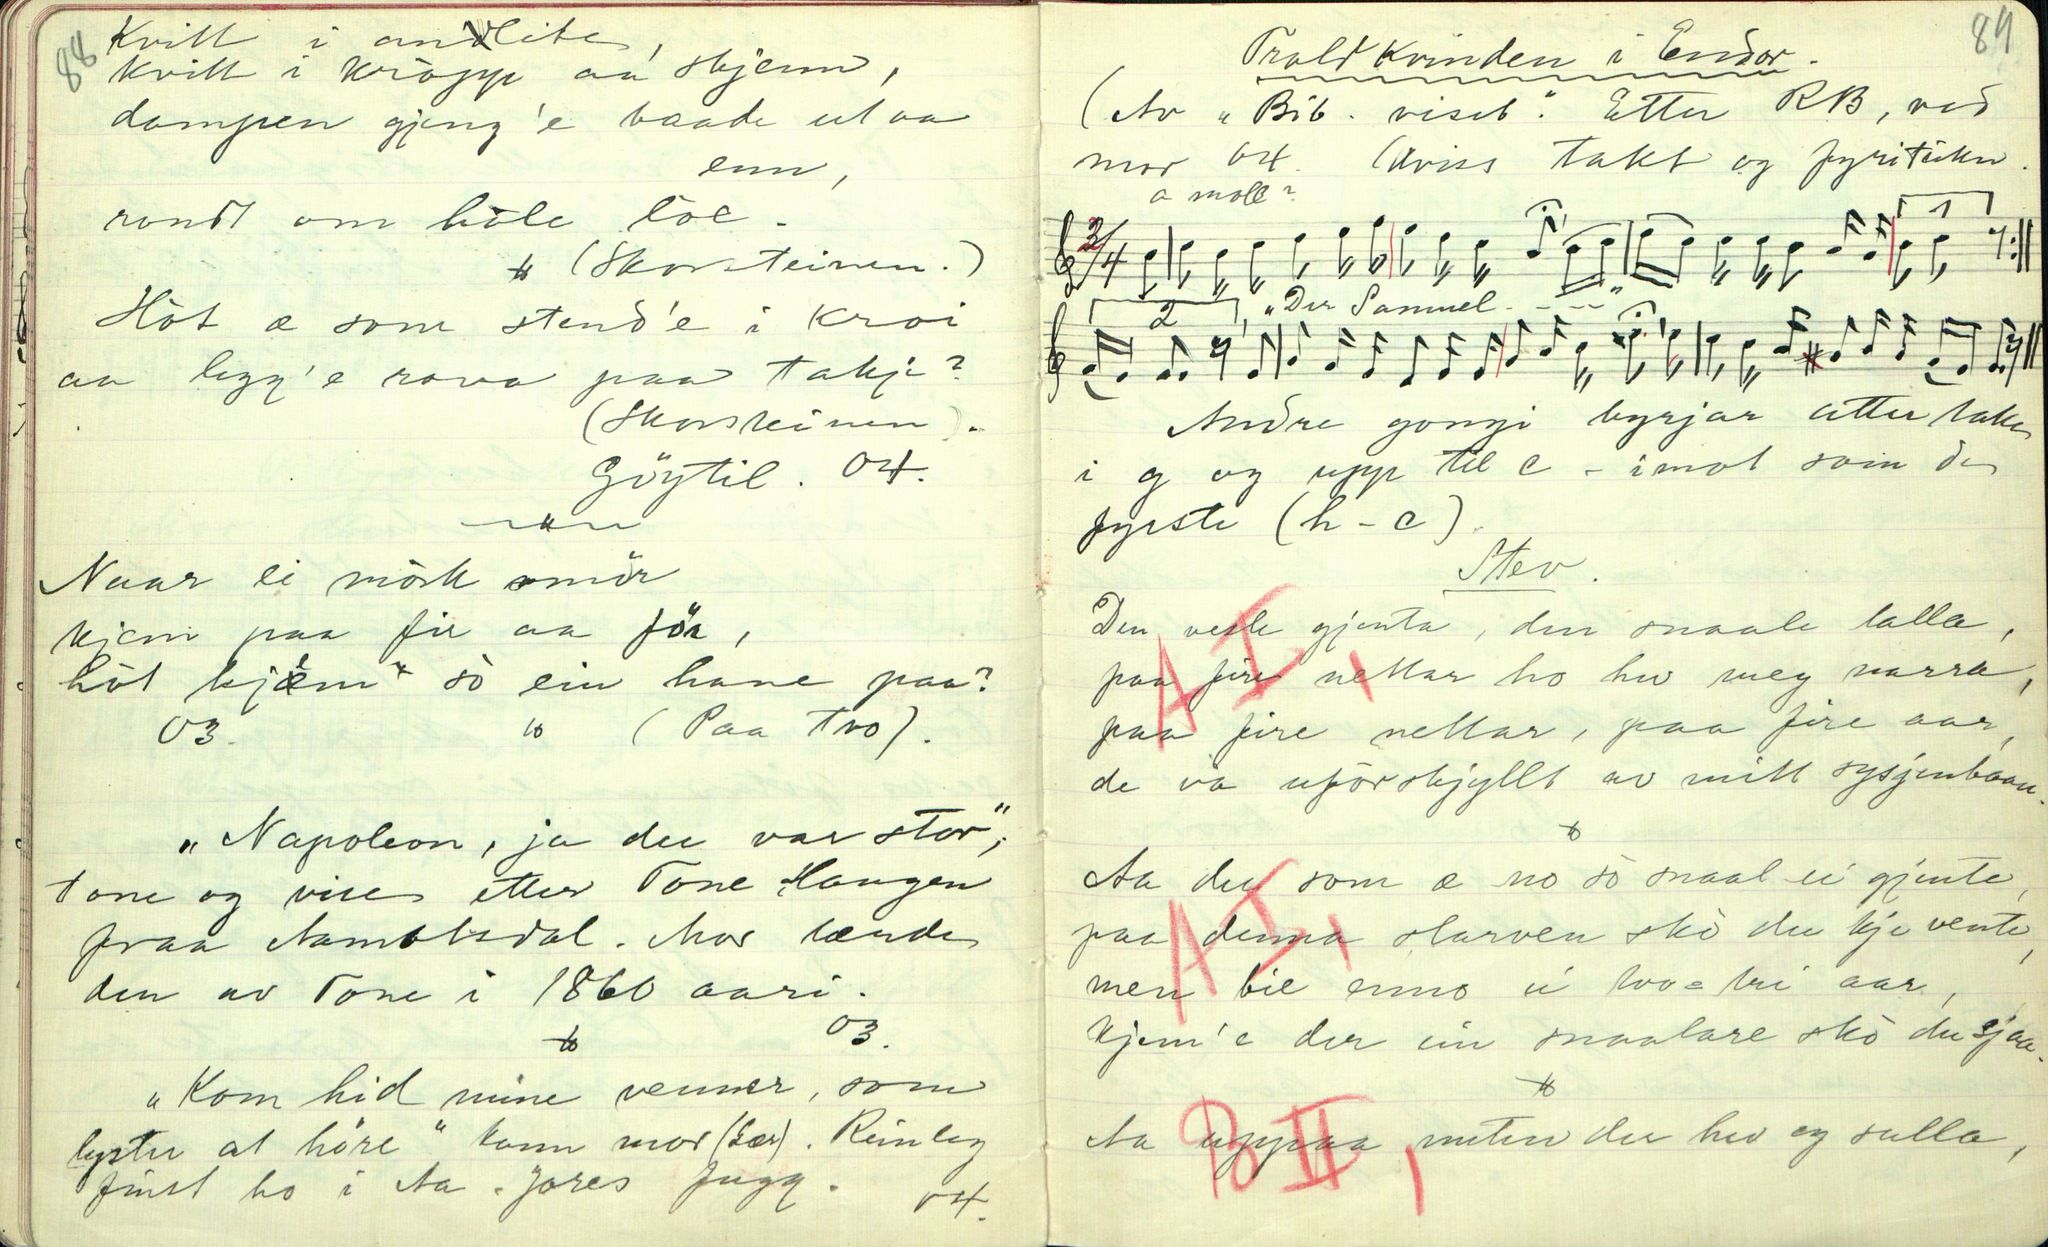 88
Kvitt i andlite,
kvitt i kròpp aa skjenn,
dampen gjeng'e baade ut aa
enn,
rondt om hòle lòe.
(Skorsteinen.)
Hòt æ som stend'e i kroi
aa legg'e rova paa takje?
(Skorsteinen).
Göytil. 04.
Naar ei mörk smör
kjem paa fir aa föa,
hòt kjèm sò ein hane paa?
03. (Paa tvo).
„Napoleon, ja du var stor",
tone og vise etter Tone Haugen
fraa Aamotsdal. Mor lærde
den av Tone i 1860 aari.
03.
„Kom hid mine venner, som
lyster at höre" kann mor (lær). Rimleg
finst ho i Aa. Jores Jugg.
04.
89
Troldkvinden i Endor.
(Av „Bib. viseb." Etter RB, ved
mor 04. Uviss takt og fyriteikn.
a moll?
3/4
1
2 „Der Samuel - - - "
Andre gongi byrjar ettertakt
i g og upp til c - imot som de
fyrste (h - c).
Stev.
Den vesle gjenta, den snaale talla,
paa fire nettar ho hev meg narra,
paa fire nettar, paa fire aar,
de va uförskjyllt av mitt sysjenbaan.
A I,
Aa du som æ no sò snaal ei gjente,
paa denna slarven skò du kje vente,
men bie enno ei tvo-tri aar,
kjem'e der ein snaalare skò du sjaa.
A I,
Aa uppaa nuten der hev eg sulla,
B II,